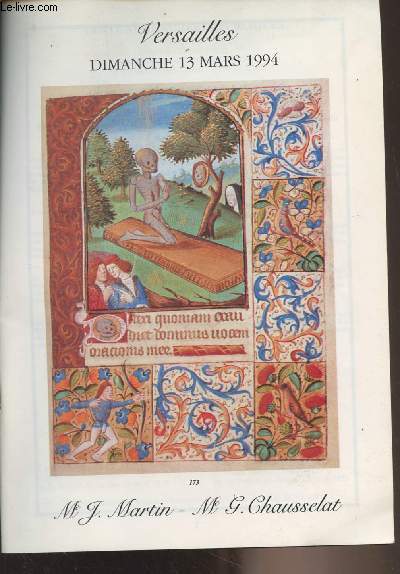 Le-livre.com
Versailles
DIMANCHE 13 MARS 1994
ilexi quoniam exau
diet dominus uocem
orationis mee.
173
Me J. Martin - Me G. Chausselat